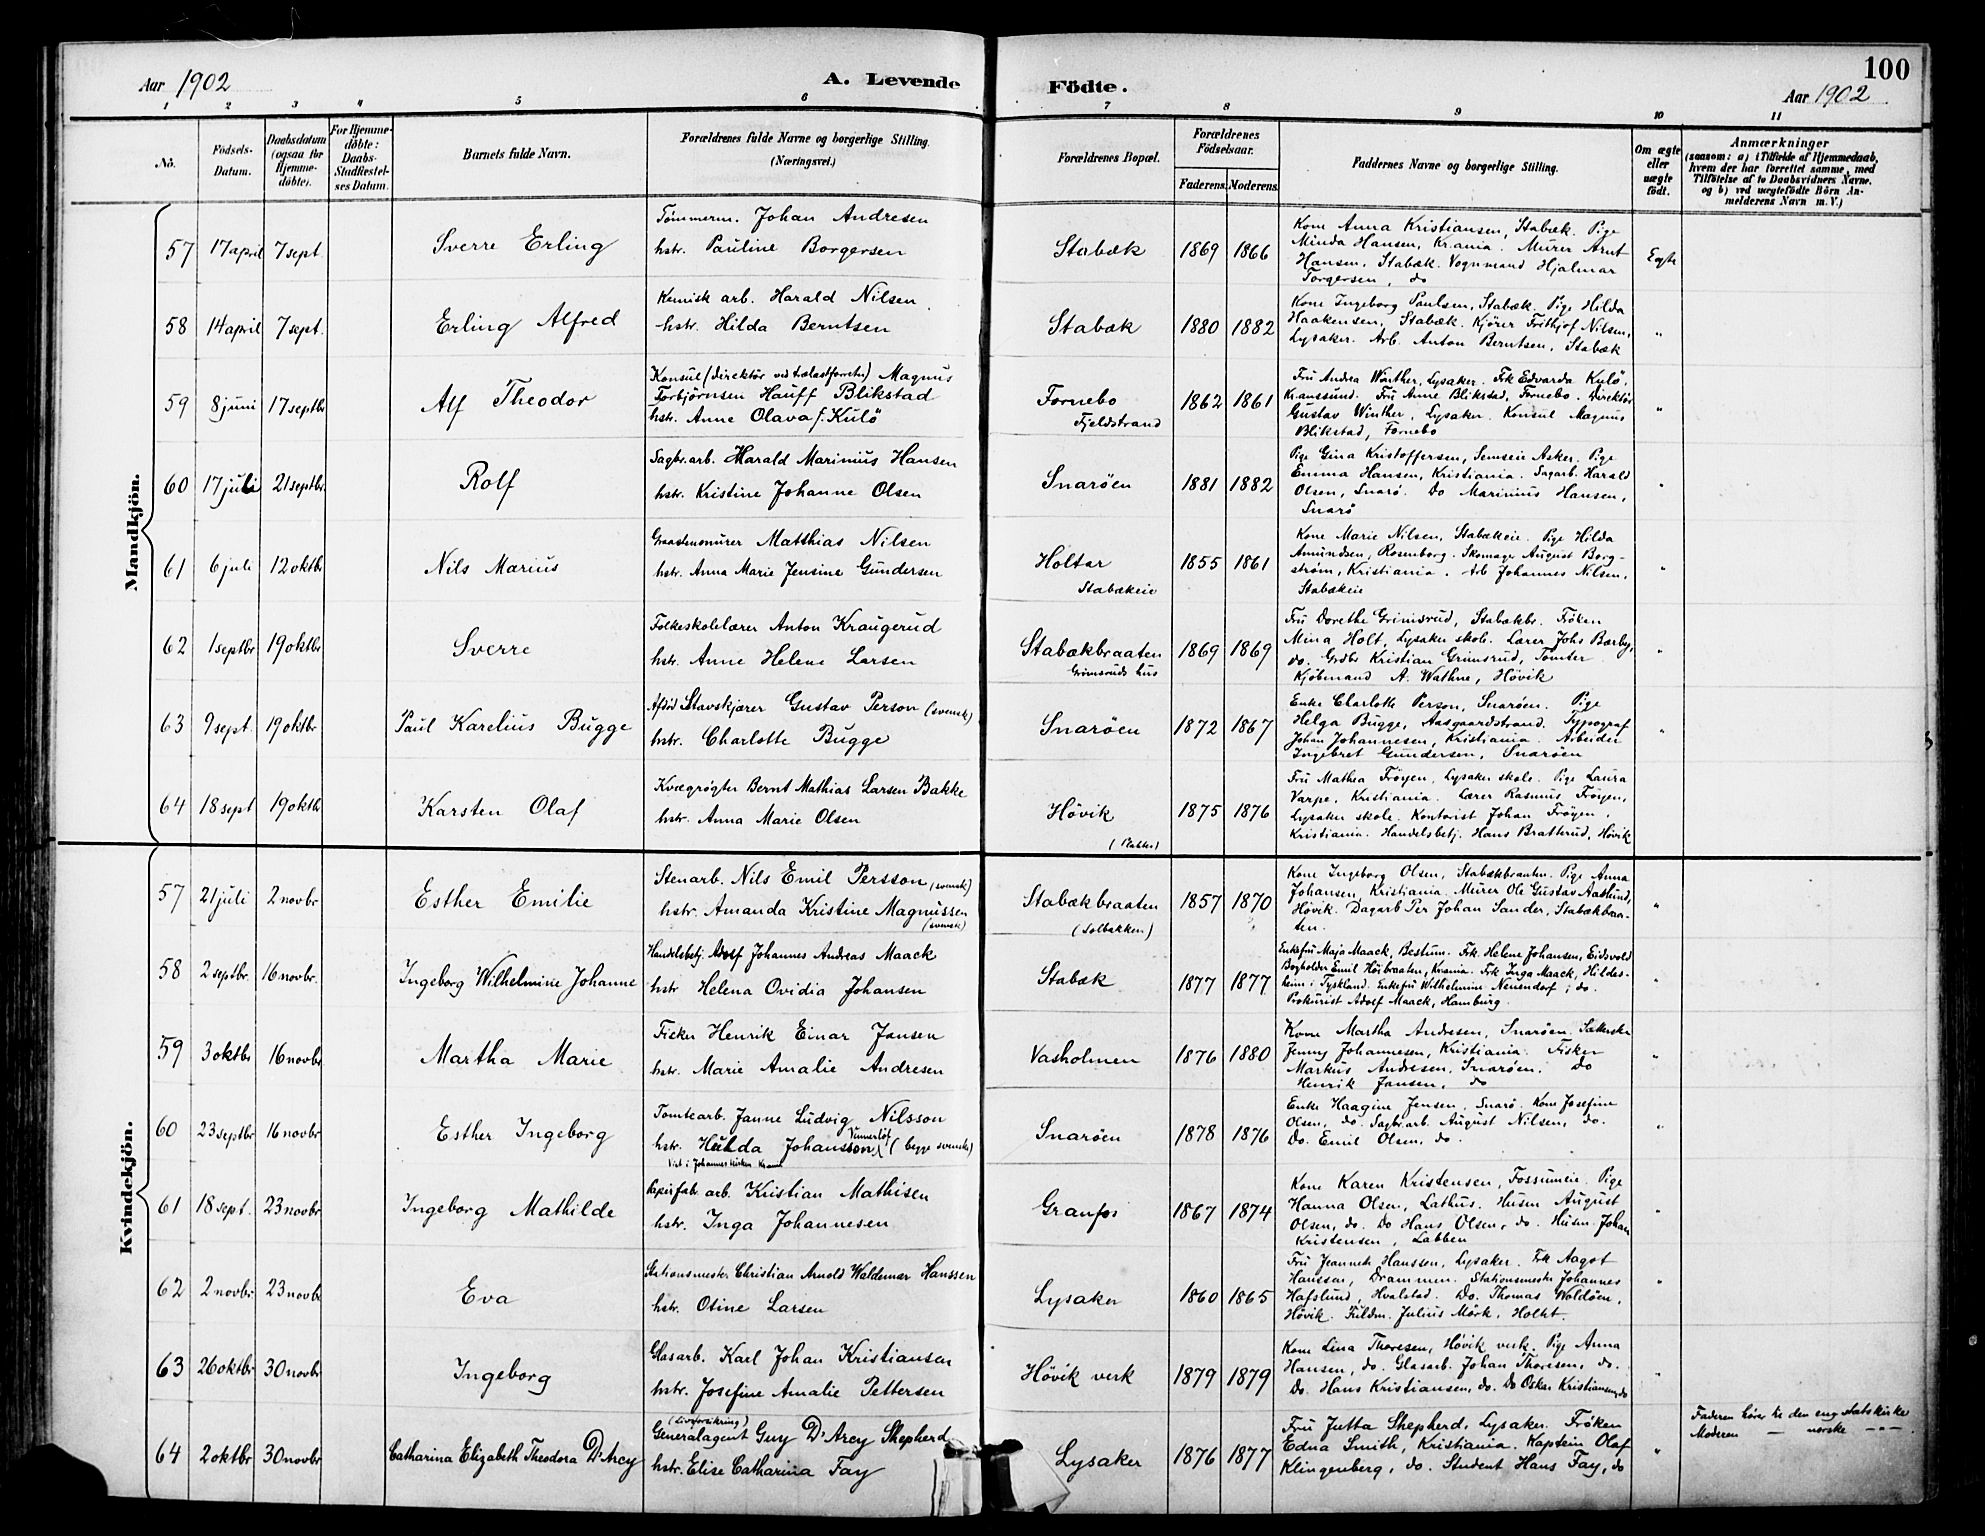 Aar 1902
A. Levende
Födte.
100
Aar 1902
1 2 3 4 5 6 7 8 9 10 11
No.
Födsels-
Datum.
Daabsdatum
(ogsaa for
Hjemme-
döbte).
For Hjemme-
döbte:
Daabs-
Stadfæstel-
ses Datum.
Barnets fulde Navn.
Forældrenes fulde Navne og borgerlige Stilling.
(Næringsvei.)
Forældrenes Bopæl.
Forældrenes
Födselsaar.
Faderens. Moderens.
Faddernes Navne og borgerlige Stilling.
Om ægte
eller
uægte
födt.
Anmærkninger
(saasom: a) i Tilfælde af Hjemmedaab,
hvem der har forrettet samme, med
Tilföielse af to Daabsvidners Navne,
og b) ved uægtefödte Börn An-
melderens Navn m. V.)
Mandkjön.
57 17 april 7 sept. Sverre Erling
Tömmerm. Johan Andresen
hstr. Pauline Borgersen
Stabæk 1869 1866
Kone Anna Kristiansen, Stabæk. Pige
Minda Hansen, Krania. Murer Arnt
Hansen, Stabæk. Vognmand Hjalmar
Torgersen, do
Egte
58 14 april 7 sept. Erling Alfred
Kemisk arb. Harald Nilsen
hstr. Hilda Berntsen
Stabæk 1880 1882
Kone Ingeborg Paulsen, Stabæk. Pige Hilda
Haakensen, Stabæk. Kjörer Frithjof Nilsen,
Lysaker. Arb. Anton Berntsen, Stabæk
"
59 8 juni 17 septbr Alf Theodor
Konsul (direktör ved trælastforretn) Magnus
Torbjörnsen Hauff Blikstad
hstr. Anne Olava f. Kulö
Fornebo
Fjeldstrand
1862 1861
Fru Andrea Winther, Lysaker. Frk Edvarda Kulö,
Kranssund. Fru Anne Blikstad, Fornebo. Direktör
Gustav Winther, Lysaker. Konsul Magnus
Blikstad, Fornebo
"
60 17 juli 21 septbr. Rolf
Sagbr. arb. Harald Marinius Hansen
hstr. Kristine Johanne Olsen
Snaröen 1881 1882
Pige Gina Kristoffersen, Semseie Asker. Pige
Emma Hansen, Kristiania. Sagarb. Harald
Olsen, Snarö. Do Marinius Hansen,
Snarö
"
61 6 juli 12 oktbr Nils Marius
Graastensmurer Matthias Nilsen
hstr. Anna Marie Jensine Gundersen
Holtar
Stabækeie
1855 1861
Kone Marie Nilsen, Stabækeie. Pige Hilda
Amundsen, Rosenborg. Skomager August Borg-
ström, Kristiania. Arb Johannes Nilsen,
Stabækeie
"
62 1 septbr 19 oktbr Sverre
Folkeskolelærer Anton Kraugerud
hstr. Anne Helene Larsen
Stabækbraaten
Grimsruds hus
1869 1869
Fru Dorethe Grimsrud, Stabækbr. Fröken
Mina Holt, Lysaker skole. Lærer Johs Bærby,
do. Grdbr Kristian Grimsrud, Tomter
Kjöbmand A. Wathne, Hövik
"
63 9 sept. 19 oktbr. Paul Karelius Bugge
Afdöd Stavskjærer Gustav Person (svensk)
hstr. Charlotte Bugge
Snaröen 1872 1867
Enke Charlotte Person, Snaröen. Pige
Helga Bugge, Aasgaardstrand. Typograf
Johan Johannesen, Kristiania. Arbeider
Ingebret Gundersen, Snaröen
"
64 18 sept 19 oktbr Karsten Olaf
Kvægrögter Bernt Mathias Larsen Bakke
hstr. Anna Marie Olsen
Hövik
1875 1876
Fru Mathea Fröyen, Lysaker skole. Pige Laura
Varpe, Kristiania. Lærer Rasmus Fröyen,
Lysaker skole. Kontorist Johan Fröyen,
Kristiania. Handelsbetj. Hans Bratterud, Hövik
Kvindekjön.
57 21 juli 2 novbr Esther Emilie
Stenarb. Nils Emil Persson (svensk)
hstr. Amanda Kristine Magnussen
(svensk)
Stabækbraaten
(Solbakken)
1857 1870
Kone Ingeborg Olsen, Stabækbraaten. Pige Anna
Johansen, Kristiania. Murer Ole Gustav Aaslund,
Hövik. Dagarb Per Johan Sander, Stabækbraa-
ten.
"
58 2 septbr. 16 novbr. Ingeborg Wilhelmine Johanne
Handelsbetj. Adolf Johannes Andreas Maack
hstr Helena Ovidia Johansen
Stabæk 1877 1877
Enkefru Maja Maack, Bestum. Frk. Helene Johansen, Eidsvold
Bogholder Emil Höibraaten, Krania. Frk Inga Maack, Hildes-
heim i Tyskland. Enkefru Wilhelmine Neuendorf, do.
Prokurist Adolf Maack, Hamburg.
"
59 3 oktbr 16 novbr Martha Marie
Fisker Henrik Einar Jansen
hstr. Marie Amalie Andresen
Vasholmen 1876 1880
Kone Martha Andresen, Snaröen.
Jenny Johannesen, Kristiania. Fisker
Markus Andresen, Snaröen. Do
Henrik Jansen, do
"
60 23 septbr 16 novbr Esther Ingeborg
Tomtearb. Janne Ludvig Nilsson
hstr. Hulda Johansson, (begge svenske)
Snaröen 1878 1876
Enke Haagine Jensen, Snarö. Kone Josefine
Olsen, do. Sagbr. arb. August Nilsen, do.
Do. Emil Olsen, do.
"
61 18 sept. 23 novbr Ingeborg Mathilde
Papirfabr arb. Kristian Mathisen
hstr. Inga Johannesen
Granfos 1867 1874
Kone Karen Kristensen, Fossumeie. Pige
Hanna Olsen, Lathus. Husm August
Olsen, do. Do Hans Olsen, do. Husm. Johan
Kristensen, Labben
"
62 2 novbr 23 novbr Eva
Stationsmester Christian Arnold Waldemar Hanssen
hstr. Otine Larsen
Lysaker 1860 1865
Fru Jeanneth Hanssen, Lysaker. Frk Aagot
Hanssen, Drammen. Stationsmester Johannes
Hafslund, Hvalstad. Do. Thomas Waldöen,
Hövik. Fuldm. Julius Mörk, Holtet.
"
63 26 oktbr 30 novbr Ingeborg
Glasarb. Karl Johan Kristiansen
hstr. Josefine Amalie Pettersen
Hövik verk 1879 1879
Kone Lina Thoresen, Hövik verk. Pige Anna
Hansen, do. Glasarb. Johan Thoresen, do.
Do. Hans Kristiansen, do. Do Oskar Kristiansen, do
"
64 2 oktbr 30 novbr Catharina Elizabeth Theodora D'Arcy
(Livsforsikring)
Generalagent Guy D'Arcy Shepherd
hstr. Elise Catharina Fay
Lysaker 1876 1877
Fru Jutta Shepherd, Lysaker. Fröken
Edna Smith, Kristiania. Kaptein Olaf
Klingenberg, do. Student Hans Fay, do
"
Faderen hörer til den eng statskirke
Moderen — norske —